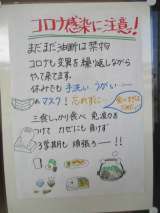 コロナ感染に注意!
まだまだ油断は禁物
コロナも変異を繰り返しながら
やって来てます。
休みでも手洗い うがい
マスク! 忘れずに
三食しっかり食べ 免疫力を
つけて カゼにも負けず
3学期も 頑張ろー!!